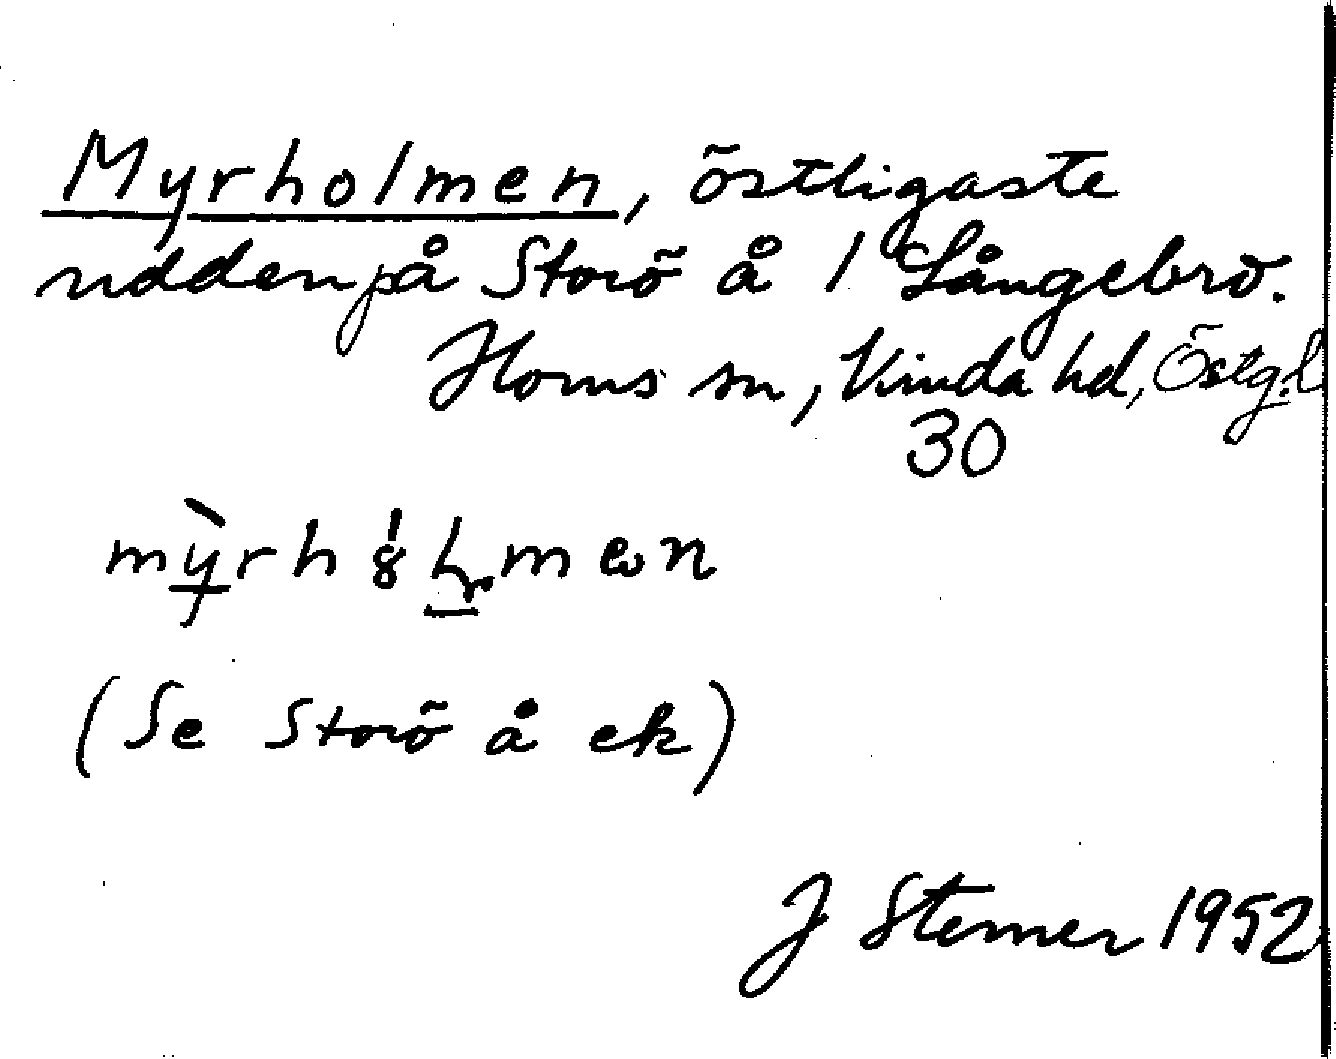 Myrholmen, östligaste
udden på Storö å 1 Långebro.
Horns sn, Kinda hd, Östg.l
30
(Se Storö å ek)
J Sterner 1952